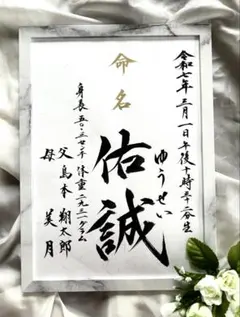 令和七年 三月一日午後十時三十二分生
ゆうせい
命名
佑誠
身長 五〇・三センチ 体重 二九三一グラム
父 島本 翔太郎
母 美月